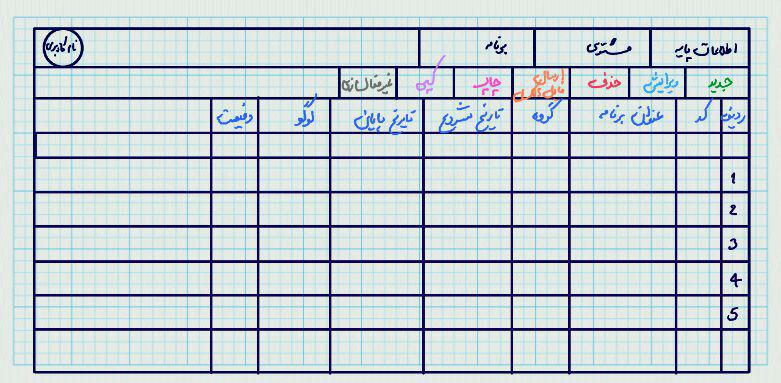 اطلاعات پایه مشتری برنامه نام کاربری
جدید ویرایش حذف ارسال چاپ کپی غیرفعالسازی
ردیف کد عنوان برنامه گروه تاریخ شروع تاریخ پایان لوگو وضعیت
1
2
3
4
5